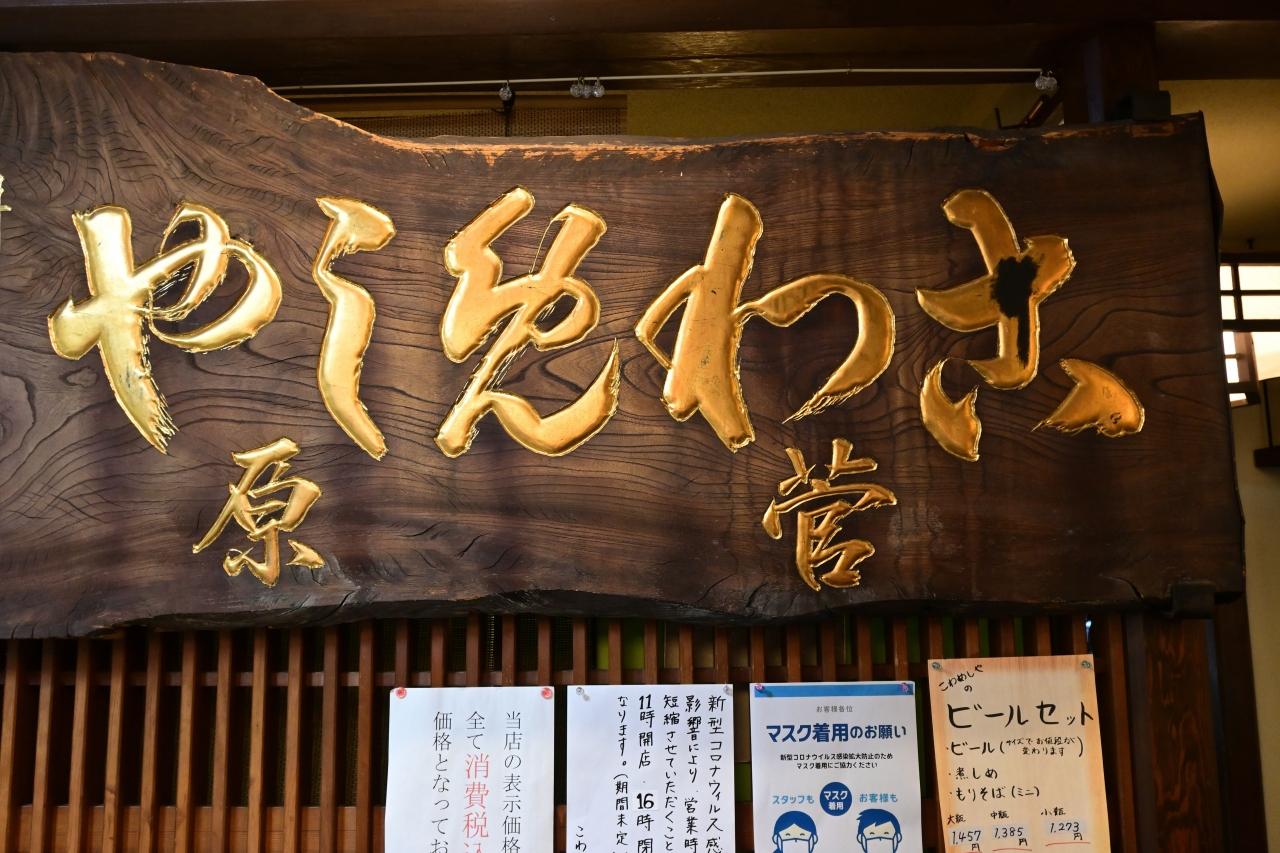 こわめしや
菅原
当店の表示価格
全て消費税込
価格となってお
新型コロナウィルス感
影響により、営業時
短縮させていただくこと
11時開店．16時閉
なります。(期間未定
こわ
お客様各位
マスク着用のお願い
新型コロナウイルス感染拡大防止のため
マスク着用にご協力ください
スタッフも マスク着用 お客様も
こわめしや
の
ビールセット
・ビール(サイズでお値段が変わります)
・煮しめ
・もりそば(ミニ)
大瓶 中瓶 小瓶
1,457円 1,385円 1,273円